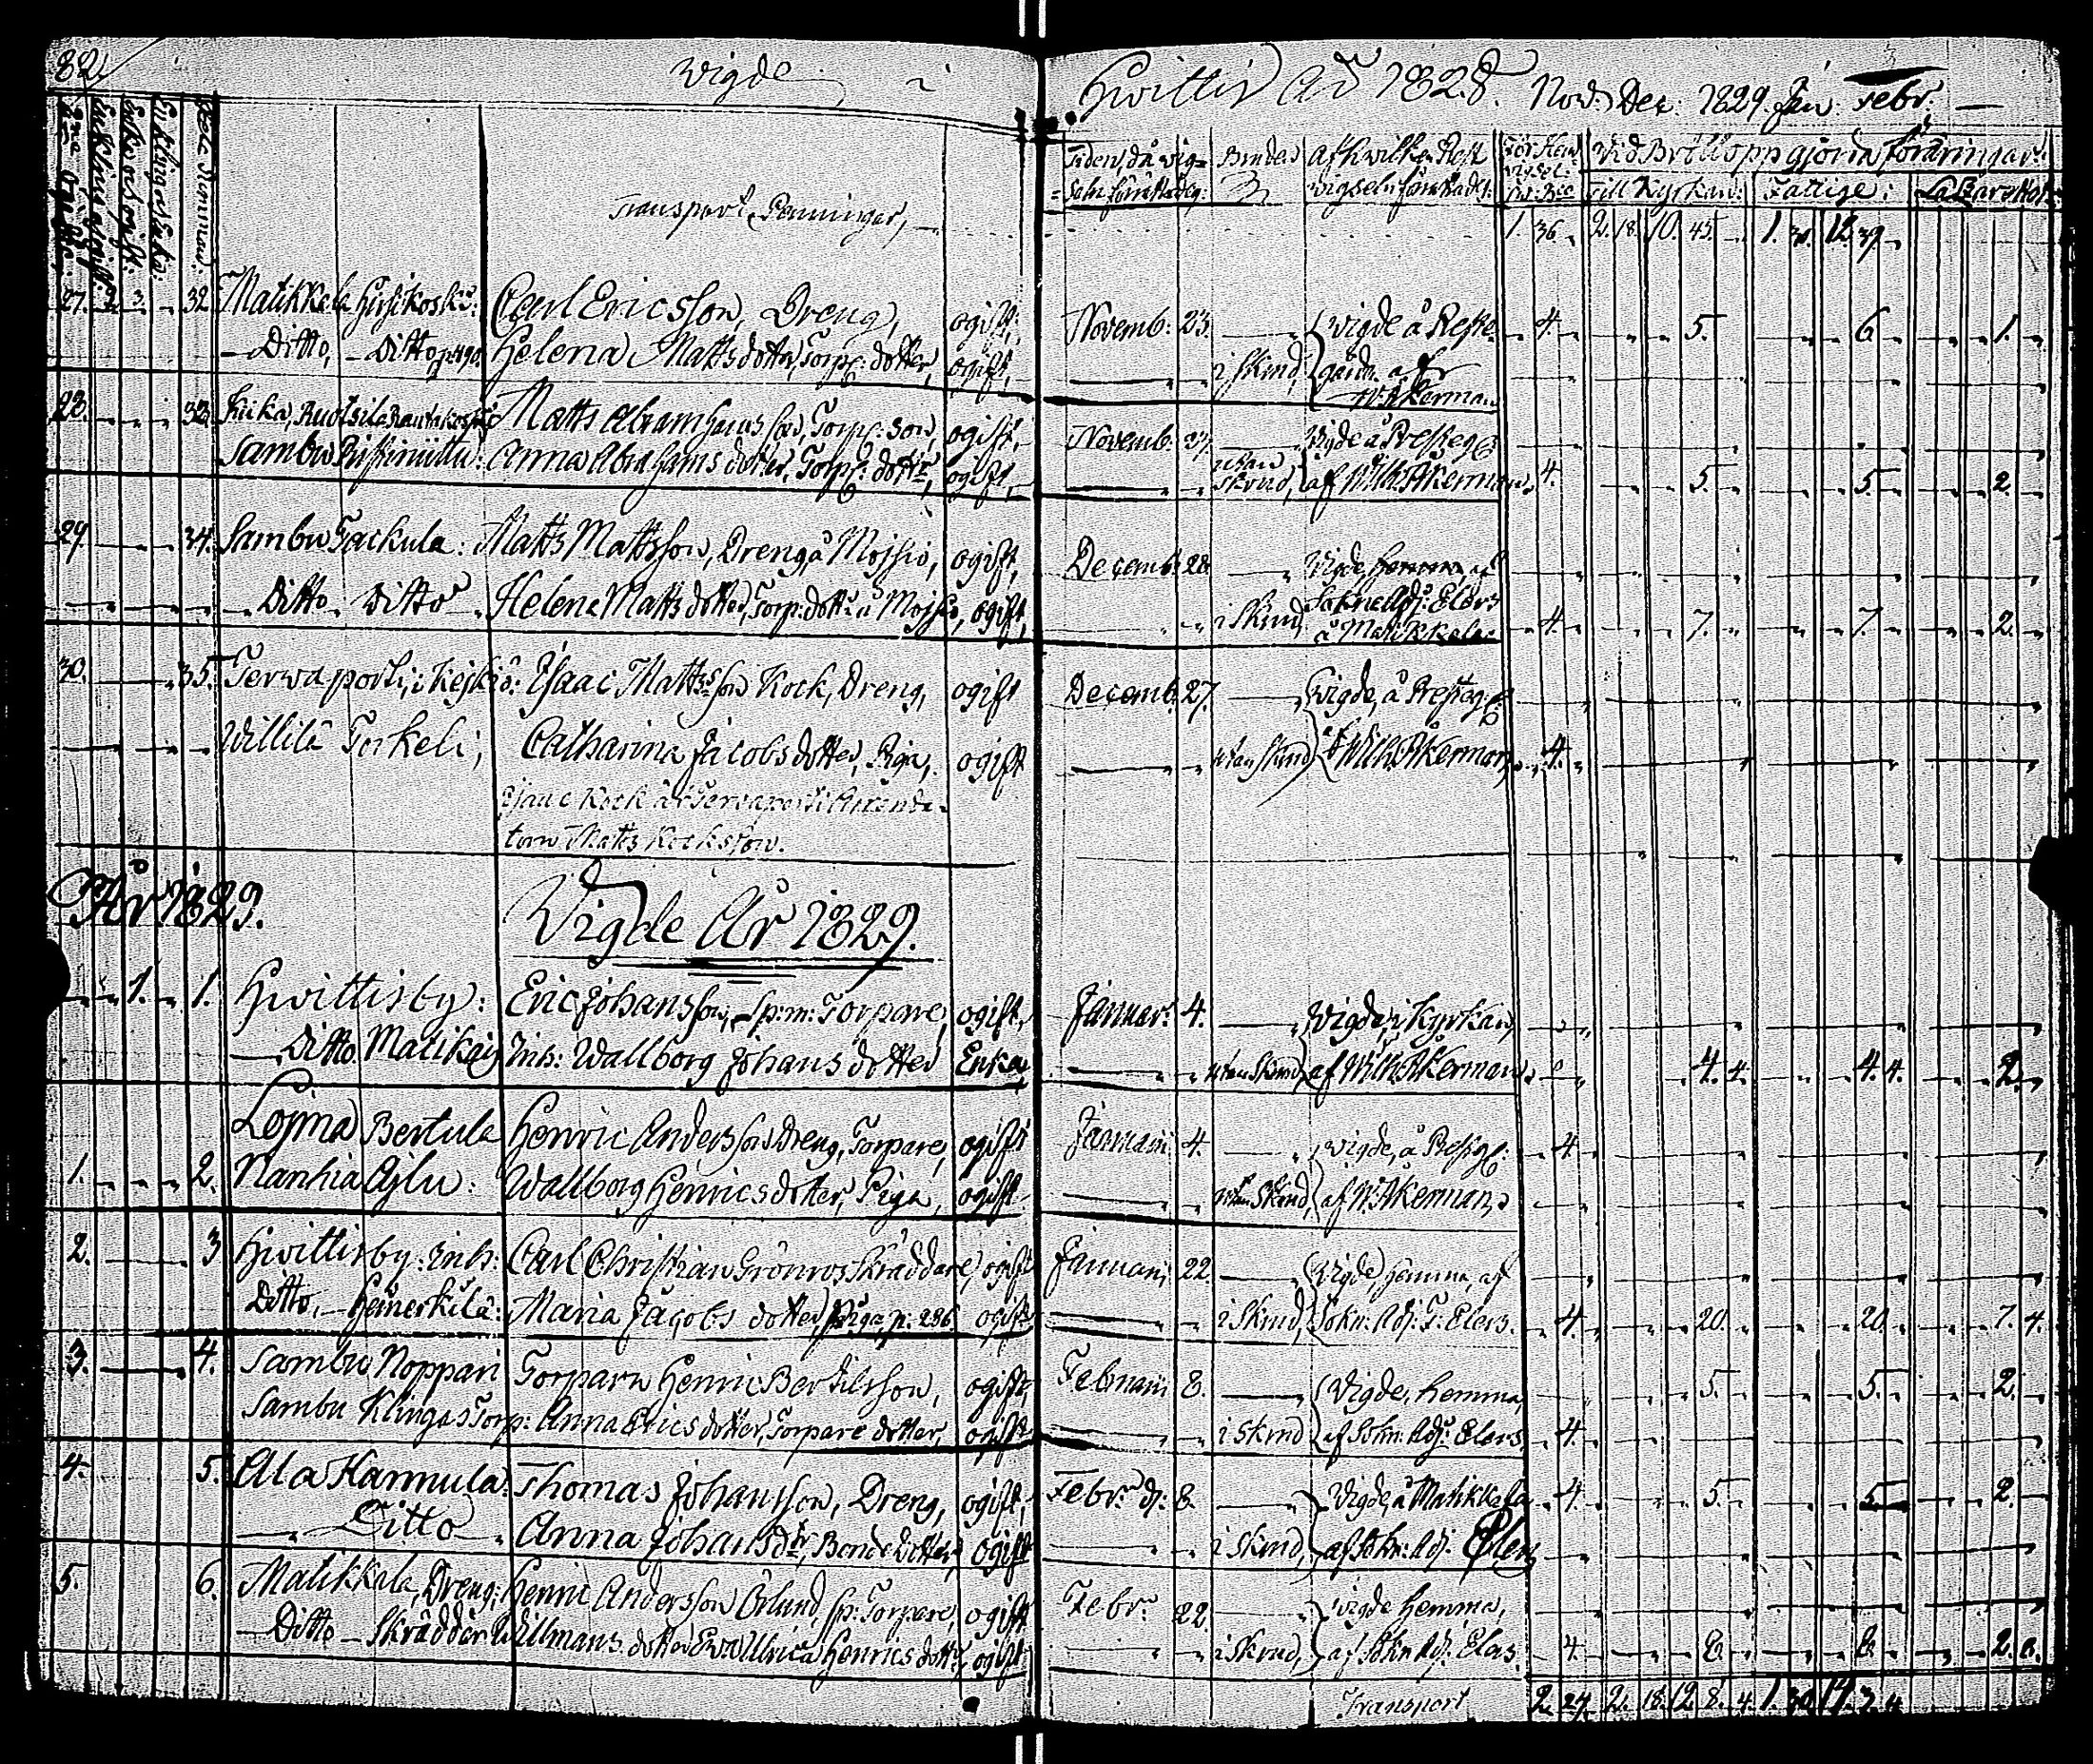 82. Vigde i Hwittis År 1828. Nov: Dec: 1829 Jan: Febr:
Tiden, då vig- Bruden Af hwilken Prest För Hem Vid Bröllopp gjorda föräringar.
seln förrättades: vigseln förrättades: till Kyrkan: Fattige: Lazarettet
Transport, Penningar, 1. 36 2. 18. 10. 45. 1. 30. 12. 39.
27. 3. 32 Matikkala Hirsikoski: Carl Ericsson, Dreng, ogift; Novemb: 23. Vigde å Preste- 4. 5. 6. 1.
Ditto, Ditto p. 490 Helena Mattsdotter, Torp: dotter, ogift, i skrud, gården af
W: Åkerman
28. 33. Matts Abrahamsson, Torp: son, ogift, Novemb: 27. Vigde å Presteg
Sambu Ristimütti: Anna Abrahams dotter, Torp: dotter, ogift, utan skrud, af Wilh. Åkerman. 4. 5. 5. 2.
29 34. Sambu Tackula: Matts Mattsson, Dreng å Mojsio, ogift, Decemb: 28. Vigde, hemma, af
Ditto Ditto Helena Matts dotter, Torp: dotter å Mojsio, ogift, i skrud, Sokne Adj: Elers 4. 7. 7. 2.
å Matikkala.
30. 35. Terwaporti, i Kejkiö: Isaac Mattsson Kock, Dreng, ogift Decemb: 27. Vigde, å Presteg:
Willilä Torkeli; Catharina Jacobsdotter, Piga, ogift utan skrud af Wilh. Åkerman. 4.
Isaac Kock är Terwaporti Arrenda-
torn Matts Kocks son.
År 1829. Vigde År 1829.
1. 1. Hwittisby: Eric Johansson, Sp:m: Torpare, ogift, Januar: 4. Vigde, i Kyrkan,
Ditto Matikais Inh: Wallborg Johans dotter Enka, utan skrud, af Wilh. Åkerman. 4. 4. 4. 4. 2.
Lojma Bertula Henric Andersson Dreng, Torpare, ogift Januarii 4. Vigde, å Presteg: 4.
1. 2. Nanhia Äjlu: Wallborg Henrics dotter, Piga, ogift utan skrud, af W: Åkerman.
2. 3 Hwittisby: Inh: Carl Christian Grönros Skräddare, ogift Januarii 22. Vigde, hemma, af
Ditto, Heinerkilä: Maria Jacobs dotter Piga, p: 286 ogift i skrud, Sokn: Adj: T: Elers. 4. 20. 20. 7. 4.
3. 4. Sambu Noppari Torparn Henric Bertilsson, ogift, Februarii 8. Vigde, hemma, 5. 5. 2.
Sambu Klingas Torp: Anna Erics dotter, Torpare dotter, ogift i skrud af Sokn: Adj: Elers 4.
4. 5. Ala Kannula: Thomas Johansson, Dreng, ogift, Febr: d: 8. Vigde, å Matikkala 4. 5. 5. 2.
Ditto Anna Johansdr, Bonde dotter, ogift i skrud, af Sokn: Adj: Elers
5. 6. Matikkala, Dreng: Henric Andersson Örlund, sp: Torpare, ogift Febr: 22. Vigde hemma,
Ditto Skräddar Willmans dotter Ewa Ullrica Henrics dotter, ogift i skrud, af Sokn Adj: Elers. 4. 8. 8. 2. 8.
Transport 2. 24. 2. 18. 12. 8. 4. 1. 30. 14. 3. 4